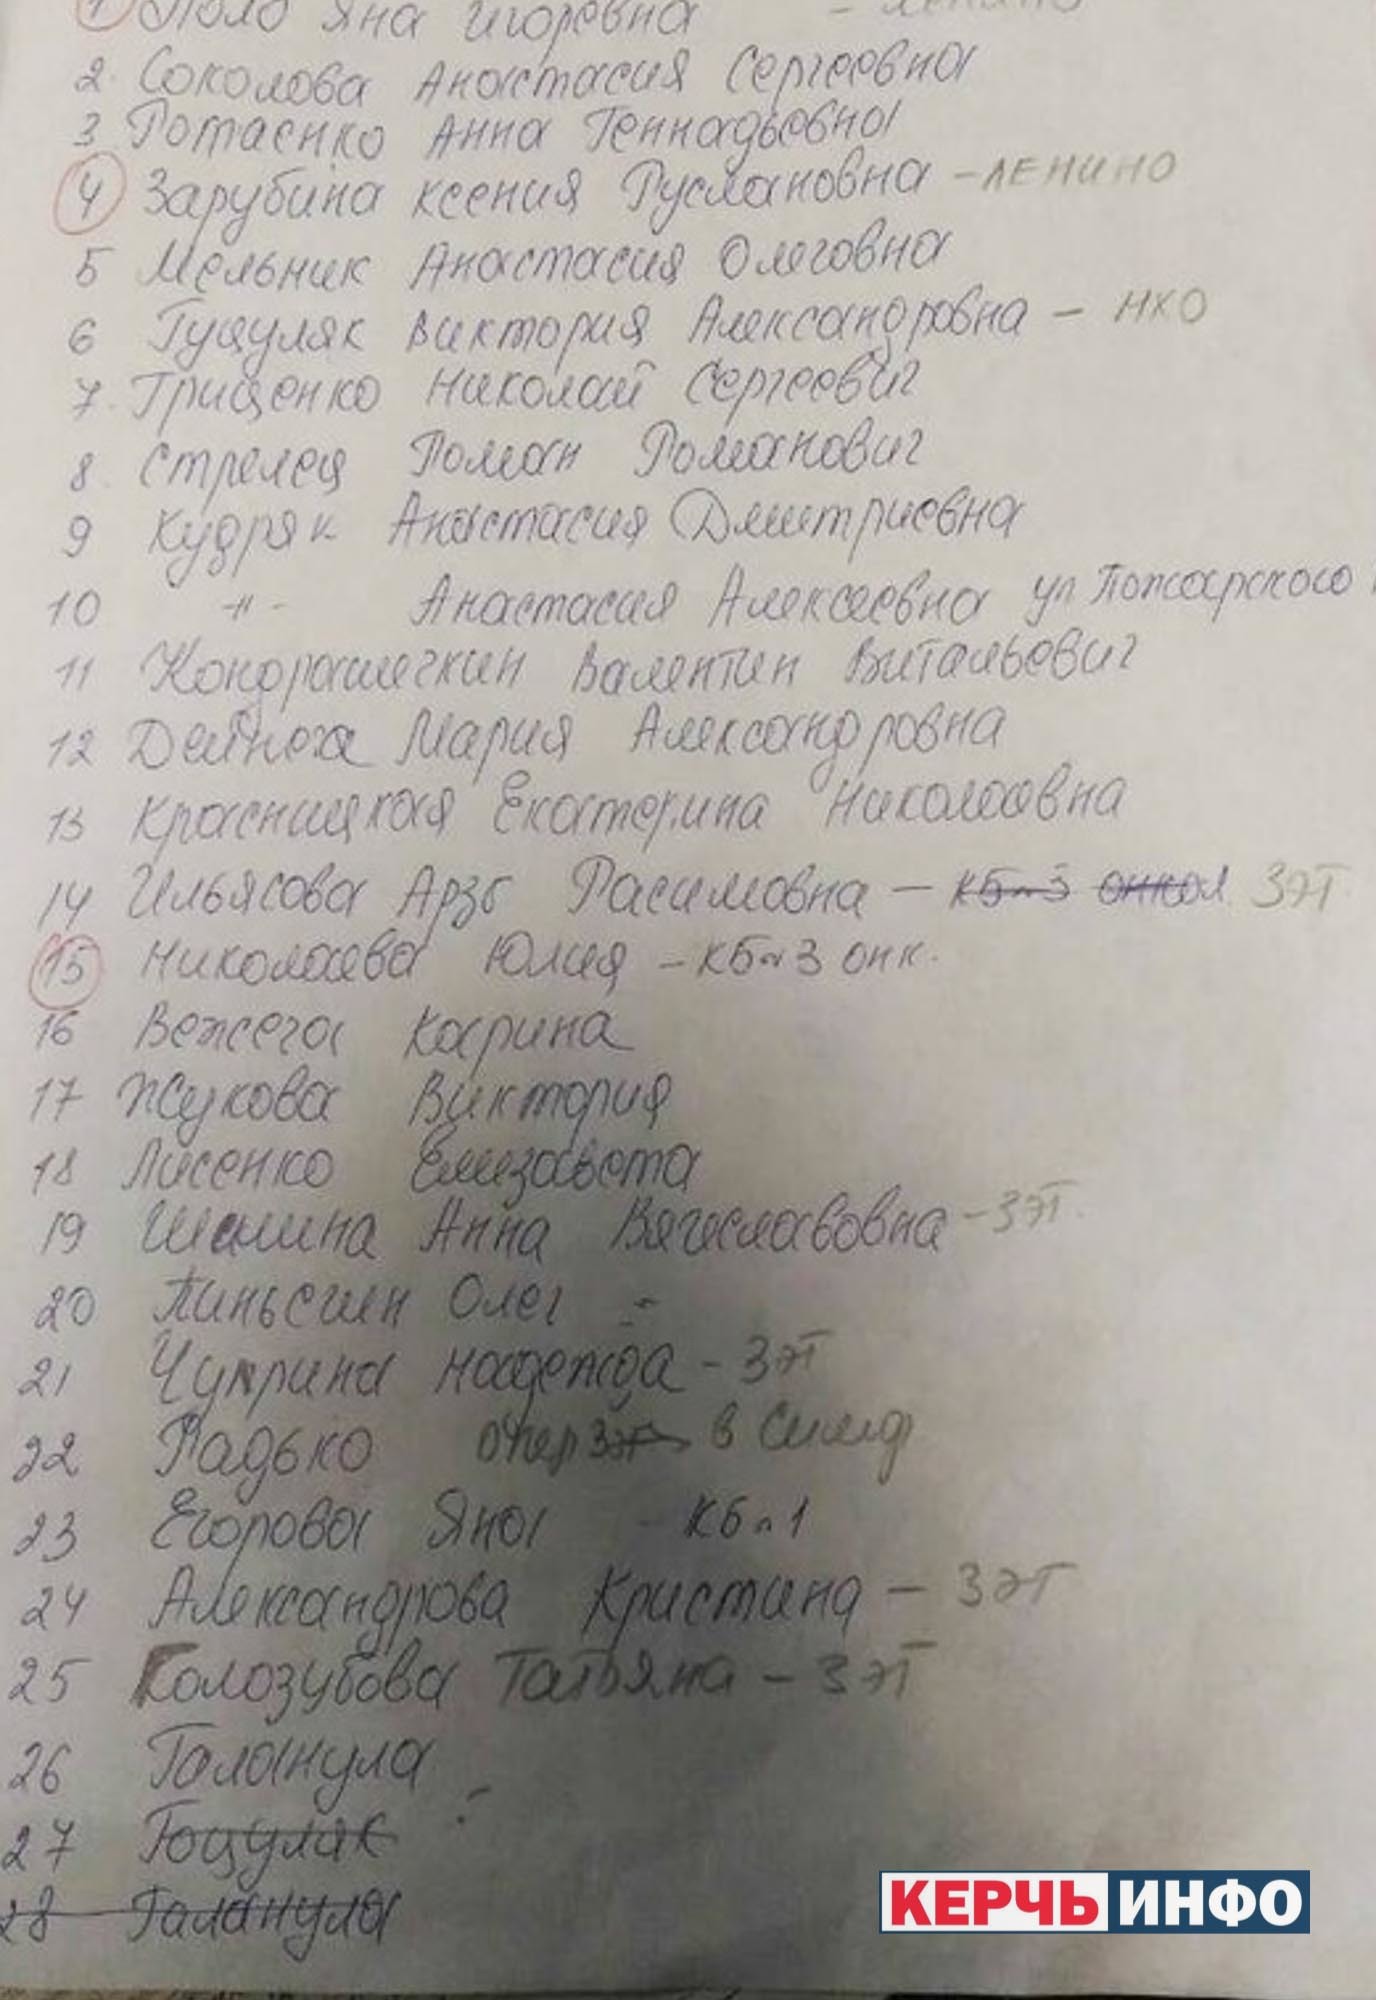 1 Поло Яна Игоревна - Ленино
2. Соколова Анастасия Сергеевна
3 Ротаенко Анна Геннадьевна
4 Зарубина Ксения Руслановна - ЛЕНИНО
5 Мельник Анастасия Олеговна
6 Гуцуляк Виктория Александровна - НХО
7. Грищенко Николай Сергеевич
8. Стрелец Роман Романович
9 Кудряк Анастасия Дмитриевна
10 -"- Анастасия Алексеевна ул Пожарского
11 Кондрашечкин Валентин Витальевич
12 Дейнега Мария Александровна
13 Красницкая Екатерина Николаевна
14 Ильясова Арзы Расимовна - КБ №3 онкол 3 эт.
15 Николаева Юлия - КБ №3 онк.
16 Вежега Карина
17 Жукова Виктория
18 Лисенко Елизавета
19 Шишина Анна Вячеславовна - 3 эт.
20 Олег -
21 Чуприна Надежда - 3 эт
22 Радько опер 3 эт в Симф
23 Егорова Яна - КБ №1
24 Александрова Кристина - 3 эт
25 Колозубова Татьяна - 3 эт
26 Галанула
27 Гоцуляк
28 Галанула
КЕРЧЬИНФО